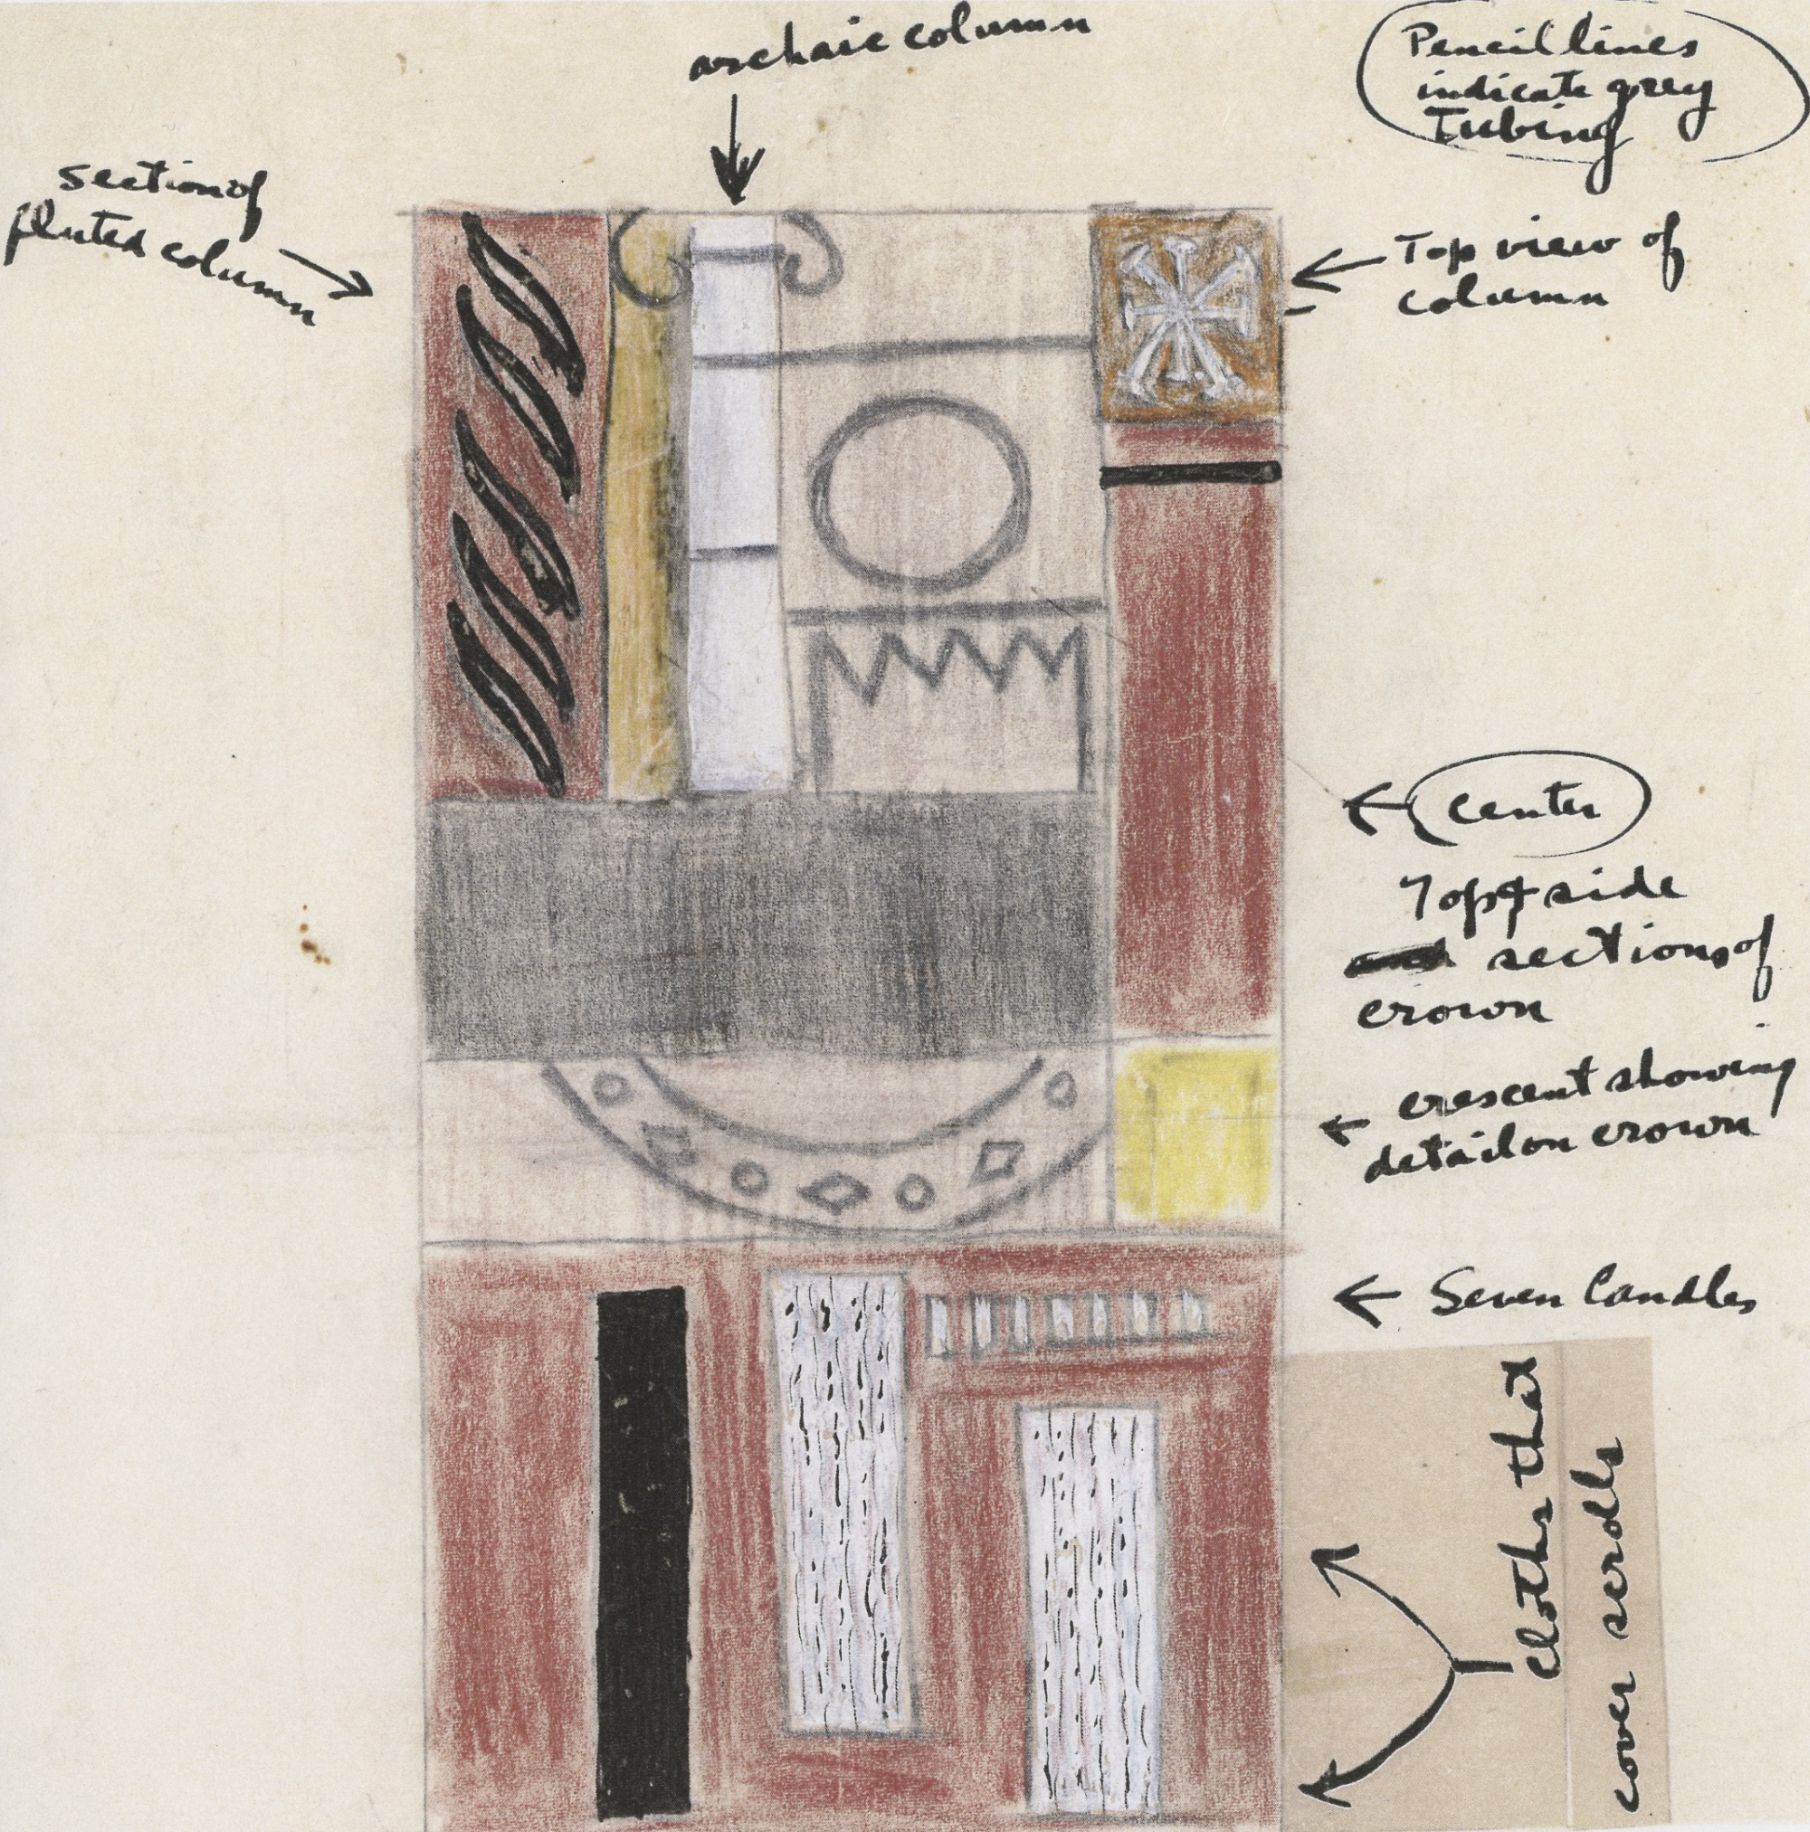 archaic column
Pencil lines
indicate grey
Tubing
section of
fluted column
Top view of
column
center
Top & side
sections of
crown
crescent showing
detail on crown
Seven Candles
cloths that
cover scrolls